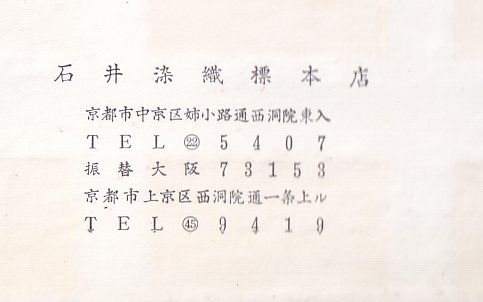 石井染織標本店
京都市中京区姉小路通西洞院東入
TEL㉒5407
振替大阪73153
京都市上京区西洞院通一条上ル
TEL㊺9419